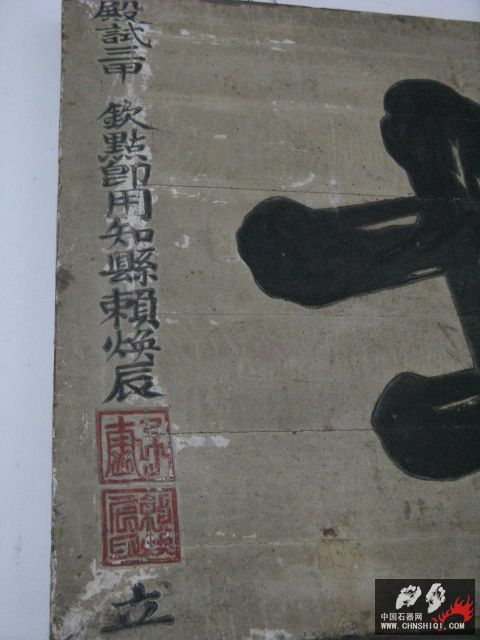 殿試三甲 欽點即用知縣賴煥辰
立
中国石器网
WWW.CHNSHIQI.COM